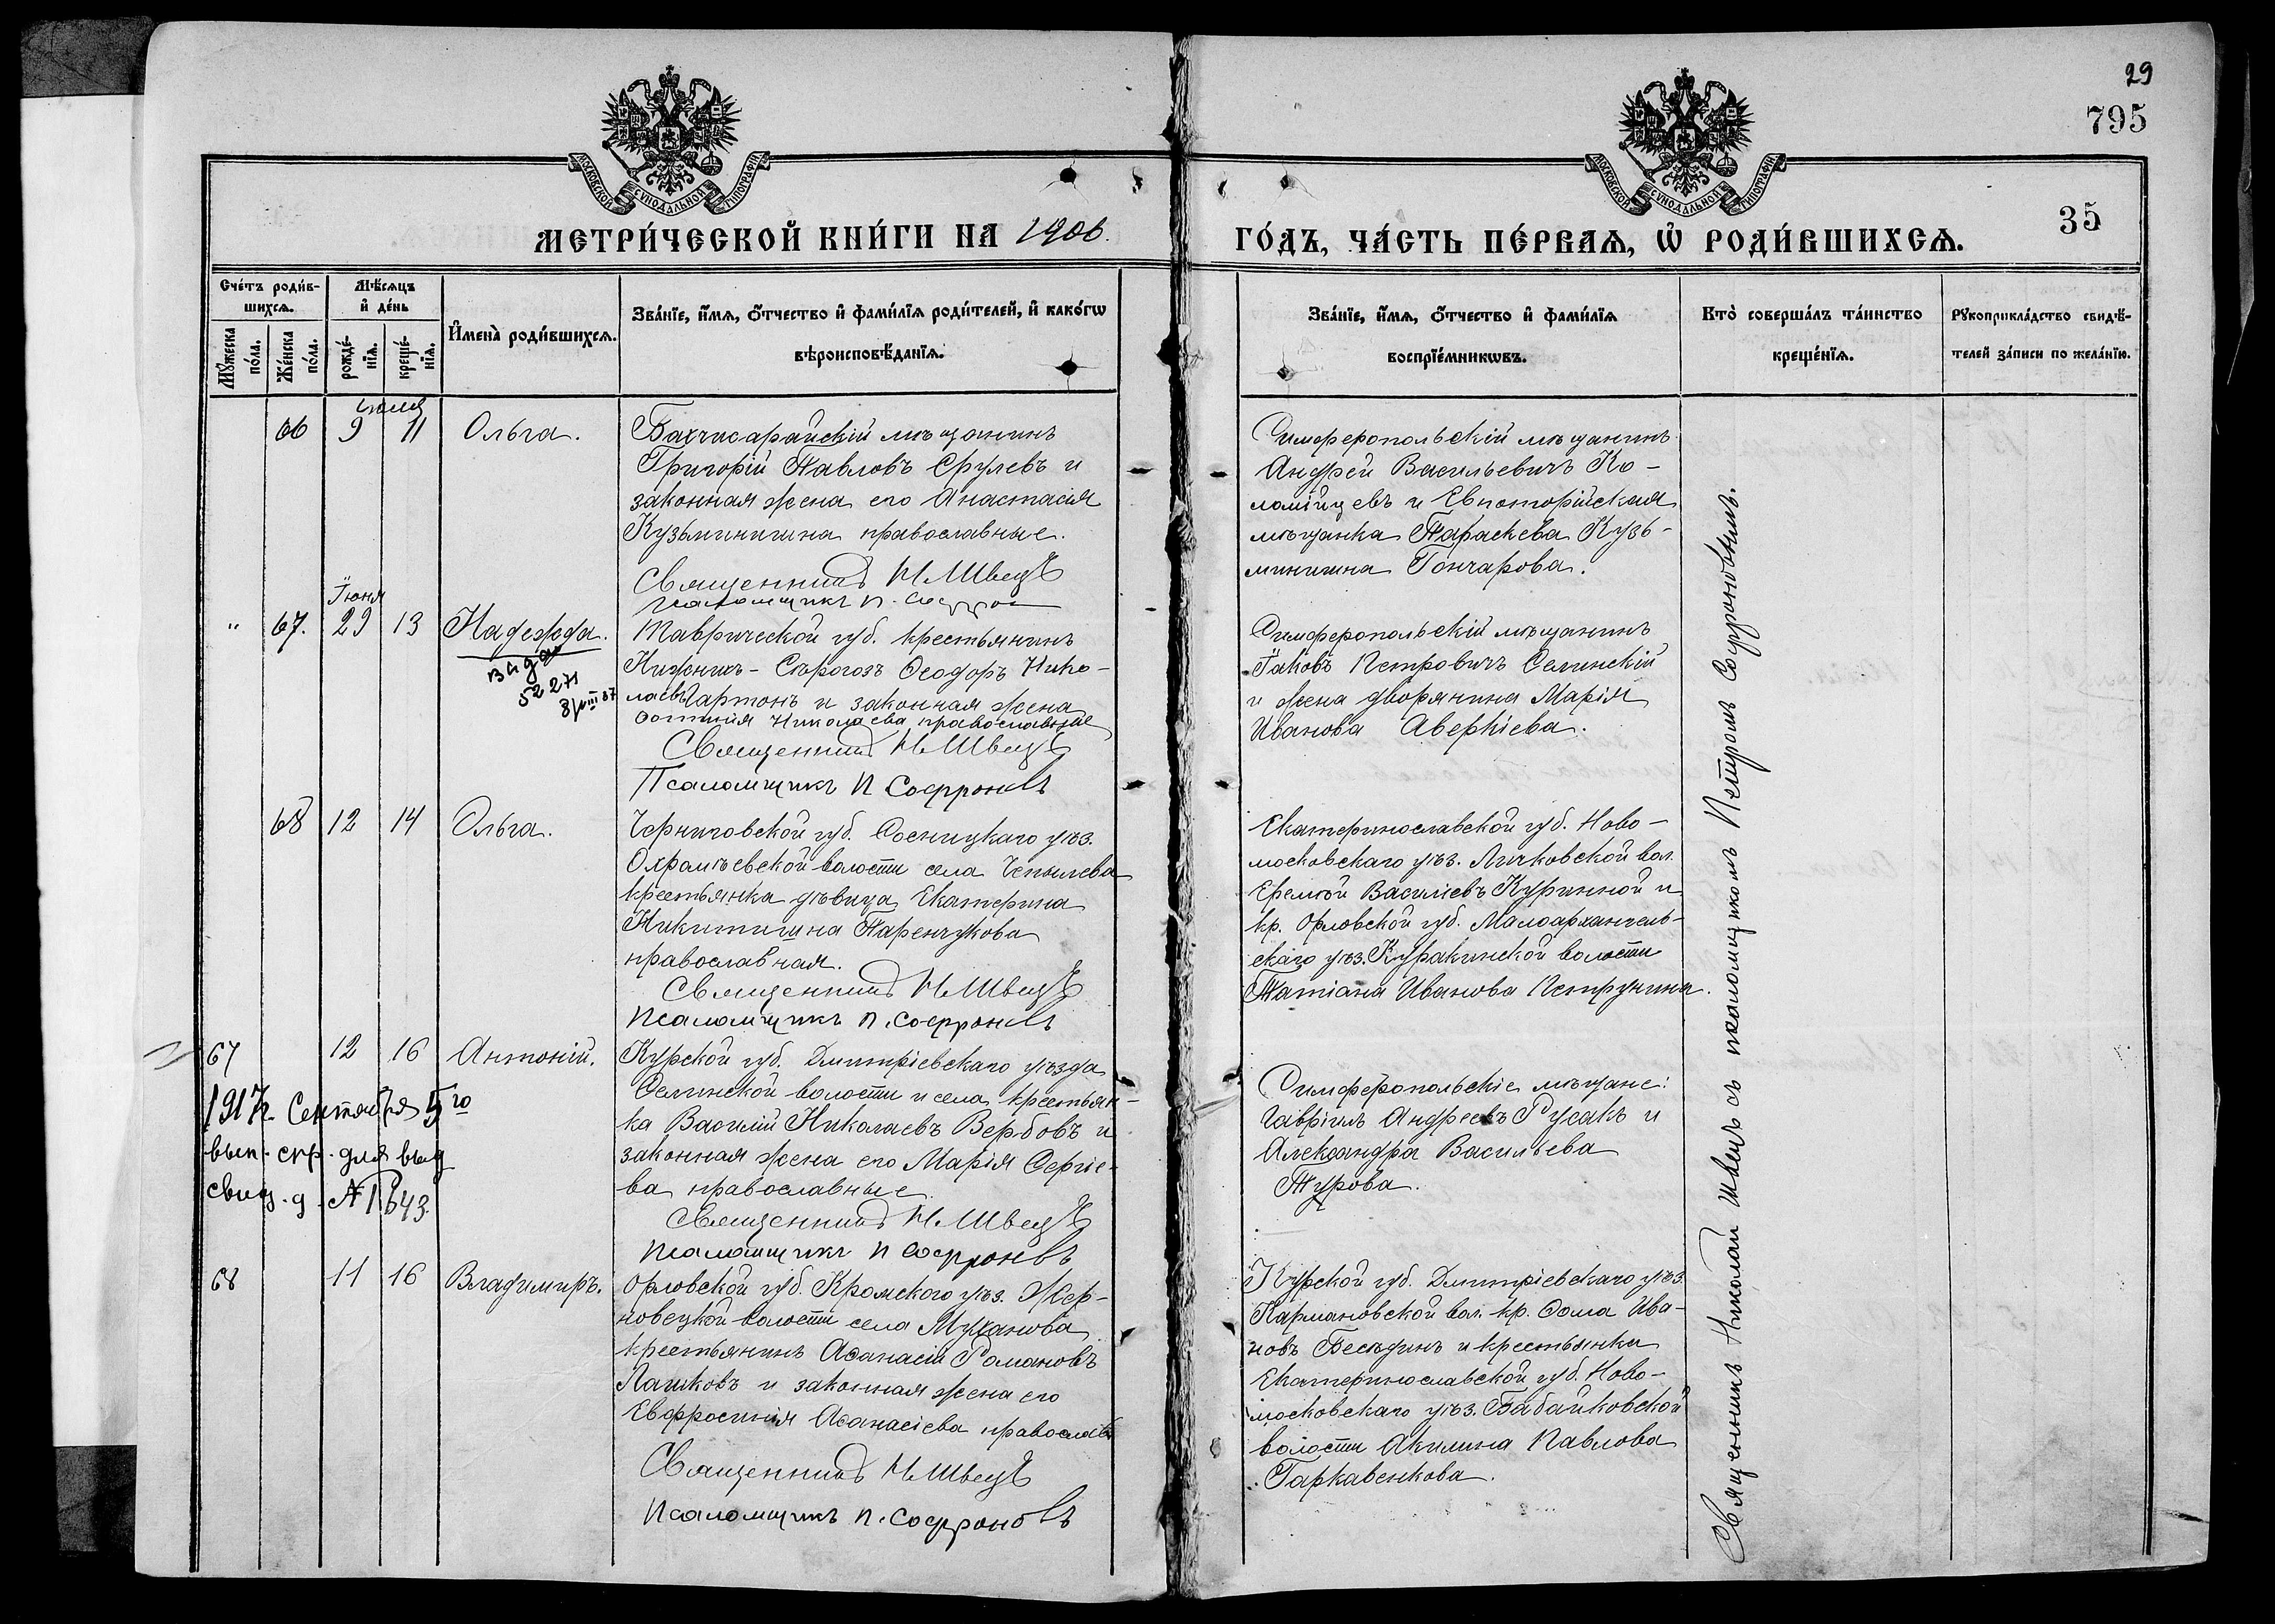 29
795
35
МОСКОВСКОЙ СѴНОДАЛЬНОЙ ТИПОГРАФІИ
МОСКОВСКОЙ СѴНОДАЛЬНОЙ ТИПОГРАФІИ
МЕТРИ́ЧЕСКОЙ КНИ́ГИ НА 1906.
ГО́ДЪ, ЧА́СТЬ ПЕ́РВАЯ, Ѡ РОДИ́ВШИХСЯ.
Сче́тъ роди́в-
шихся.
Мѣ́сяцъ
и де́нь
Му́жеска
по́ла.
Же́нска
по́ла.
рожде́-
нія.
креще́-
нія.
Имена̀ роди́вшихся.
Зва́ніе, и́мя, о́тчество и фами́лія роди́телей, и како́гѡ
вѣроисповѣ́данія.
Зва́ніе, и́мя, о́тчество и фами́лія
воспріе́мникѡвъ.
Кто̀ соверша́лъ та́инство
креще́нія.
Рукоприкла́дство свидѣ́-
телей за́писи по жела́нію.
Іюля
66 9 11 Ольга.
Бахчисарайскій мѣщанинъ
Григорій Павловъ Срулевъ и
законная жена его Анастасія
Кузьминишна православные.
Священникъ Н. Швецъ
Псаломщикъ П. Софрон
Симферопольскій мѣщанинъ
Андрей Васильевичъ Ко-
ломійцевъ и Евпаторійская
мѣщанка Параскева Кузь-
минишна Гончарова.
Іюня
" 67. 29 13 Надежда.
выдан
52271
8/VIII 37
Таврической губ. крестьянинъ
Нижнихъ-Сѣрогозъ Ѳеодоръ Нико-
лаевъ Чартонъ и законная жена
Фотинія Николаева православные
Священникъ Н. Швецъ
Псаломщикъ П Софроновъ
Симферопольскій мѣщанинъ
Іаковъ Петровичъ Селинскій
и жена дворянина Марія
Иванова Аверкіева.
68 12 14 Ольга.
Черниговской губ. Сосницкаго уѣз.
Охрамѣевской волости села Чепылева
крестьянка дѣвица Екатерина
Никитишна Паренчукова
православная.
Священникъ Н. Швецъ
Псаломщикъ П. Софроновъ
Екатеринославской губ. Ново-
московскаго уѣз. Личковской вол.
Еремѣй Василіевъ Куринной и
кр. Орловской губ. Малоархангель-
скаго уѣз. Куракинской волости
Татіана Иванова Петрунина.
67 12 16 Антоній.
1917 г. Сентября 5го
вып. скр. для выд
свид. д. № 1643.
Курской губ. Дмитріевскаго уѣзда
Селинской волости и села крестьян-
ка Василій Николаевъ Вербовъ и
законная жена его Марія Сергіе-
ва православные.
Священникъ Н. Швецъ
Псаломщикъ П Софроновъ
Симферопольскіе мѣщане:
Гавріилъ Андреевъ Русакъ и
Александра Васильева
Турова.
68 11 16 Владимиръ.
Орловской губ. Кромского уѣз. Жер-
новецкой волости села Муханова
крестьянинъ Аѳанасій Романовъ
Пашковъ и законная жена его
Евфросинія Аѳанасіева православ
Священникъ Н. Швецъ
Псаломщикъ П. Софроновъ
Курской губ. Дмитріевскаго уѣз.
Кармановской вол. кр. Ѳома Ива-
новъ Бесѣдинъ и крестьянка
Екатеринославской губ. Ново-
московскаго уѣз. Бабайковской
волости Акилина Павлова
Гаркавенкова.
Священникъ Николай Швецъ съ псаломщикомъ Петромъ Софроновымъ.